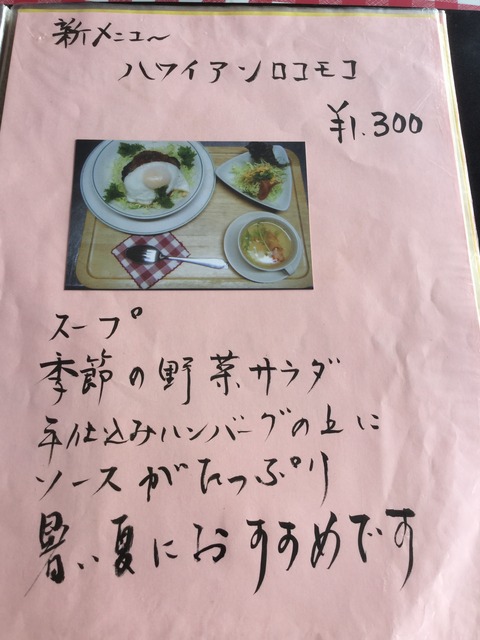 新メニュ〜
ハワイアンロコモコ
¥1.300
スープ
季節の野菜サラダ
手仕込みハンバーグの上に
ソースがたっぷり
暑い夏におすすめです